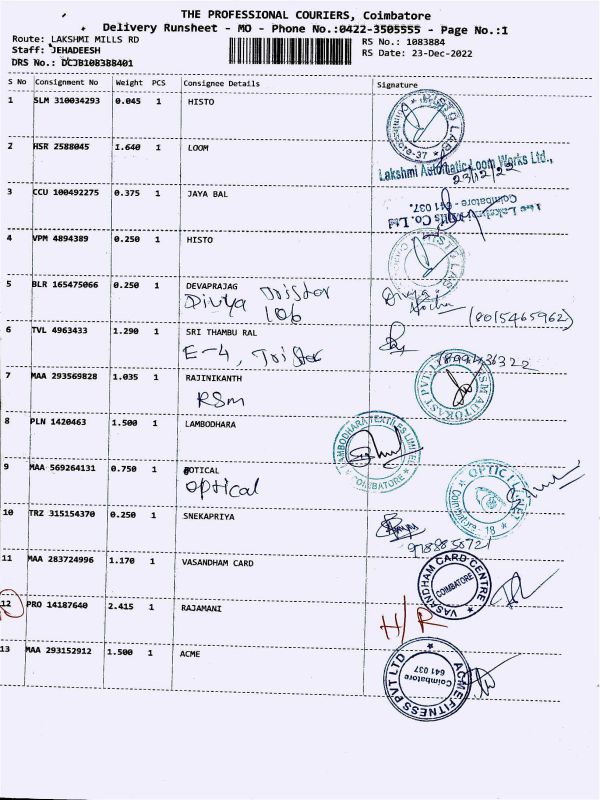 THE PROFESSIONAL COURIERS, Coimbatore
Delivery Runsheet - MO - Phone No.:0422-3505555 - Page No.:1
Route: LAKSHMI MILLS RD
Staff: JEHADEESH
DRS No.: DCJB108388401
RS No.: 1083884
RS Date: 23-Dec-2022
S No Consignment No Weight PCS Consignee Details Signature
1 SLM 310034293 0.045 1 HISTO
HISTO LABS
2 HSR 2588045 1.640 1 LOOM
Lakshmi Automatic Loom Works Ltd.,
23/12/22
3 CCU 100492275 0.375 1 JAYA BAL
Coimbatore - 641 037.
4 VPM 4894389 0.250 1 HISTO
5 BLR 165475066 0.250 1 DEVAPRAJAG
Divya Trister
106
Divya.
(8015465962)
6 TVL 4963433 1.290 1 SRI THAMBU RAL
E-4, Trister
7 MAA 293569828 1.035 1 RAJINIKANTH
RSM
RSM AUTOKAST PVT. LTD
8 PLN 1420463 1.500 1 LAMBODHARA
LAMBODHARA TEXTILES LIMITED
COIMBATORE
9 MAA 569264131 0.750 1 OTICAL
Optical
Coimbatore - 18
10 TRZ 315154370 0.250 1 SNEKAPRIYA
9788858721
11 MAA 283724996 1.170 1 VASANDHAM CARD
VASANDHAM CARD CENTRE
COIMBATORE
12 PRO 14187640 2.415 1 RAJAMANI
H/R
13 MAA 293152912 1.500 1 ACME
ACME FITNESS PVT LTD
Coimbatore
641 037